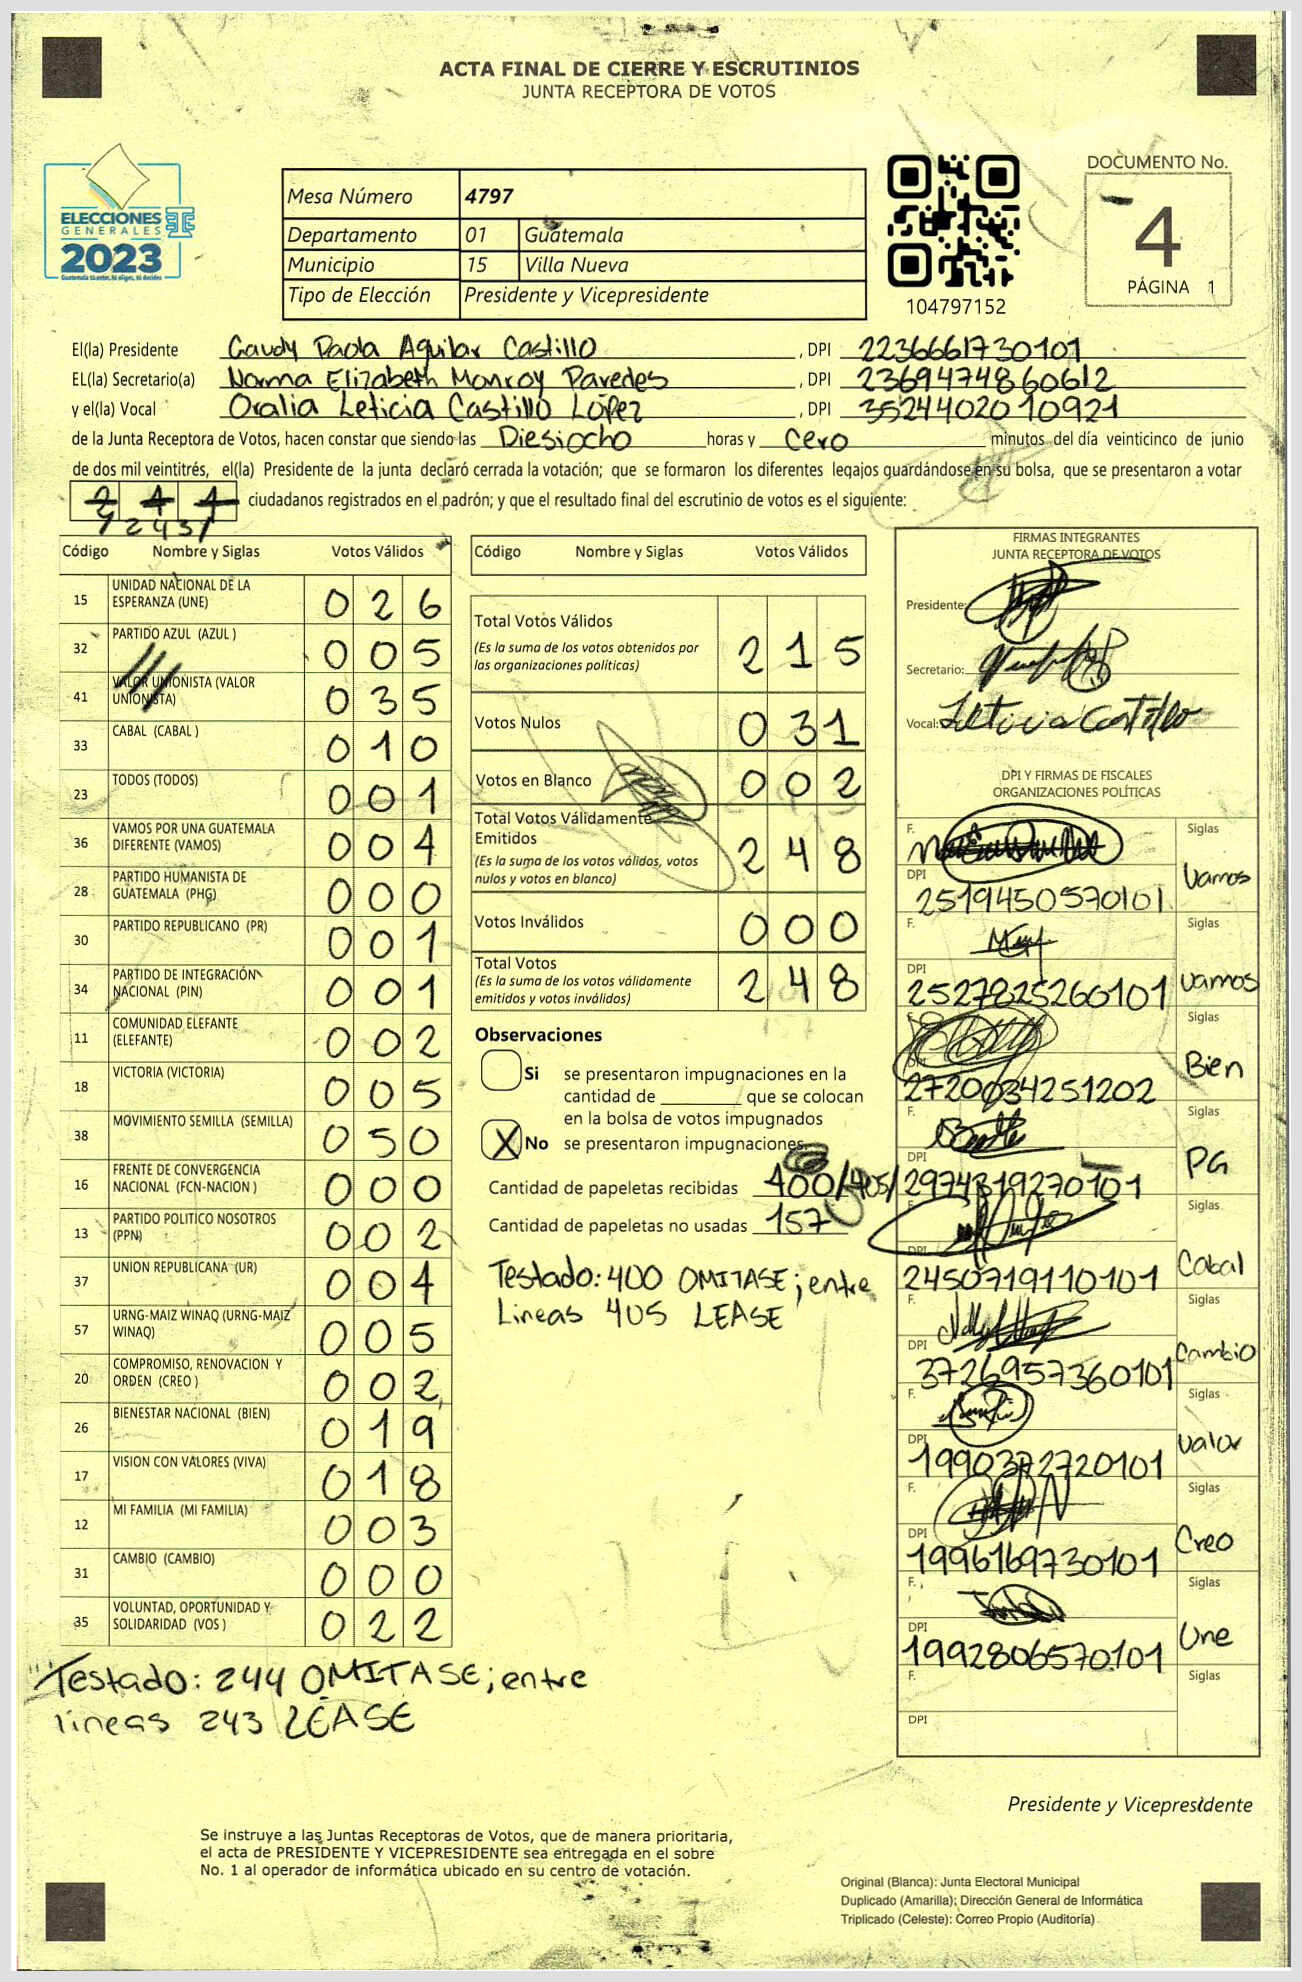 ACTA FINAL DE CIERRE Y ESCRUTINIOS
JUNTA RECEPTORA DE VOTOS
ELECCIONES
GENERALES
2023
Guatemala tú entras, tú eliges, tú decides
Mesa Número 4797
Departamento 01 Guatemala
Municipio 15 Villa Nueva
Tipo de Elección Presidente y Vicepresidente
104797152
DOCUMENTO No.
4
PÁGINA 1
El(la) Presidente Gaudy Paola Aguilar Castillo , DPI 2236661730101
EL(la) Secretario(a) Norma Elizabeth Monroy Paredes , DPI 2369474860612
y el(la) Vocal Oralia Leticia Castillo López , DPI 3524402010921
de la Junta Receptora de Votos, hacen constar que siendo las Diesiocho horas y cero minutos del día veinticinco de junio
de dos mil veintitrés, el(la) Presidente de la junta declaró cerrada la votación; que se formaron los diferentes legajos guardándose en su bolsa, que se presentaron a votar
2 4 4 ciudadanos registrados en el padrón; y que el resultado final del escrutinio de votos es el siguiente:
/ 243 /
Código Nombre y Siglas Votos Válidos
15 UNIDAD NACIONAL DE LA ESPERANZA (UNE) 0 2 6
32 PARTIDO AZUL (AZUL ) 0 0 5
41 VALOR UNIONISTA (VALOR UNIONISTA) 0 3 5
33 CABAL (CABAL ) 0 1 0
23 TODOS (TODOS) 0 0 1
36 VAMOS POR UNA GUATEMALA DIFERENTE (VAMOS) 0 0 4
28 PARTIDO HUMANISTA DE GUATEMALA (PHG) 0 0 0
30 PARTIDO REPUBLICANO (PR) 0 0 1
34 PARTIDO DE INTEGRACIÓN NACIONAL (PIN) 0 0 1
11 COMUNIDAD ELEFANTE (ELEFANTE) 0 0 2
18 VICTORIA (VICTORIA) 0 0 5
38 MOVIMIENTO SEMILLA (SEMILLA) 0 5 0
16 FRENTE DE CONVERGENCIA NACIONAL (FCN-NACION ) 0 0 0
13 PARTIDO POLITICO NOSOTROS (PPN) 0 0 2
37 UNION REPUBLICANA (UR) 0 0 4
57 URNG-MAIZ WINAQ (URNG-MAIZ WINAQ) 0 0 5
20 COMPROMISO, RENOVACION Y ORDEN (CREO ) 0 0 2
26 BIENESTAR NACIONAL (BIEN) 0 1 9
17 VISION CON VALORES (VIVA) 0 1 8
12 MI FAMILIA (MI FAMILIA) 0 0 3
31 CAMBIO (CAMBIO) 0 0 0
35 VOLUNTAD, OPORTUNIDAD Y SOLIDARIDAD (VOS ) 0 2 2
Testado: 244 OMITASE; entre
lineas 243 LEASE
Código Nombre y Siglas Votos Válidos
Total Votos Válidos 2 1 5
(Es la suma de los votos obtenidos por
las organizaciones políticas)
Votos Nulos 0 3 1
Votos en Blanco 0 0 2
Total Votos Válidamente
Emitidos 2 4 8
(Es la suma de los votos válidos, votos
nulos y votos en blanco)
Votos Inválidos 0 0 0
Total Votos 2 4 8
(Es la suma de los votos válidamente
emitidos y votos inválidos)
Observaciones
Si se presentaron impugnaciones en la
cantidad de ________ que se colocan
en la bolsa de votos impugnados
X No se presentaron impugnaciones.
Cantidad de papeletas recibidas 400/405/
Cantidad de papeletas no usadas 157
Testado: 400 OMITASE; entre
Lineas 405 LEASE
FIRMAS INTEGRANTES
JUNTA RECEPTORA DE VOTOS
Presidente:
Secretario:
Vocal: Leticia Castillo
DPI Y FIRMAS DE FISCALES
ORGANIZACIONES POLÍTICAS
F. Siglas
DPI 2519450570101 Vamos
F. Siglas
DPI 2527825260101 Vamos
F. Siglas
DPI 2720034251202 Bien
F. Siglas
DPI 2974319270101 PG
Siglas
DPI 2450719110101 Cabal
F. Siglas
DPI 3726957360101 Cambio
F. Siglas
DPI 1990372720101 Valor
F. Siglas
DPI 1996169730101 Creo
F. Siglas
DPI 1992806570101 Une
F. Siglas
DPI
Presidente y Vicepresidente
Se instruye a las Juntas Receptoras de Votos, que de manera prioritaria,
el acta de PRESIDENTE Y VICEPRESIDENTE sea entregada en el sobre
No. 1 al operador de informática ubicado en su centro de votación.
Original (Blanca): Junta Electoral Municipal
Duplicado (Amarilla): Dirección General de Informática
Triplicado (Celeste): Correo Propio (Auditoría)